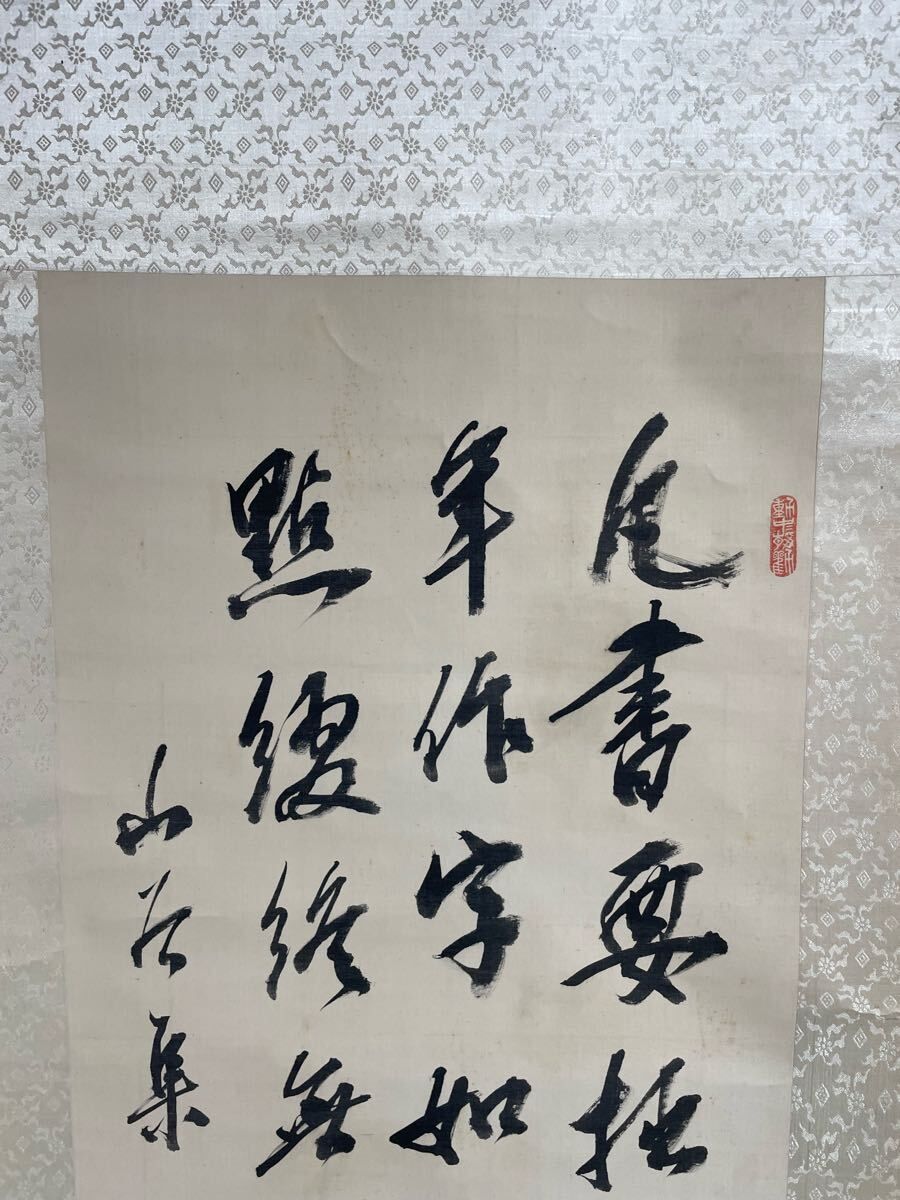 凡書要拙
年作字如
點綴終無
山谷集